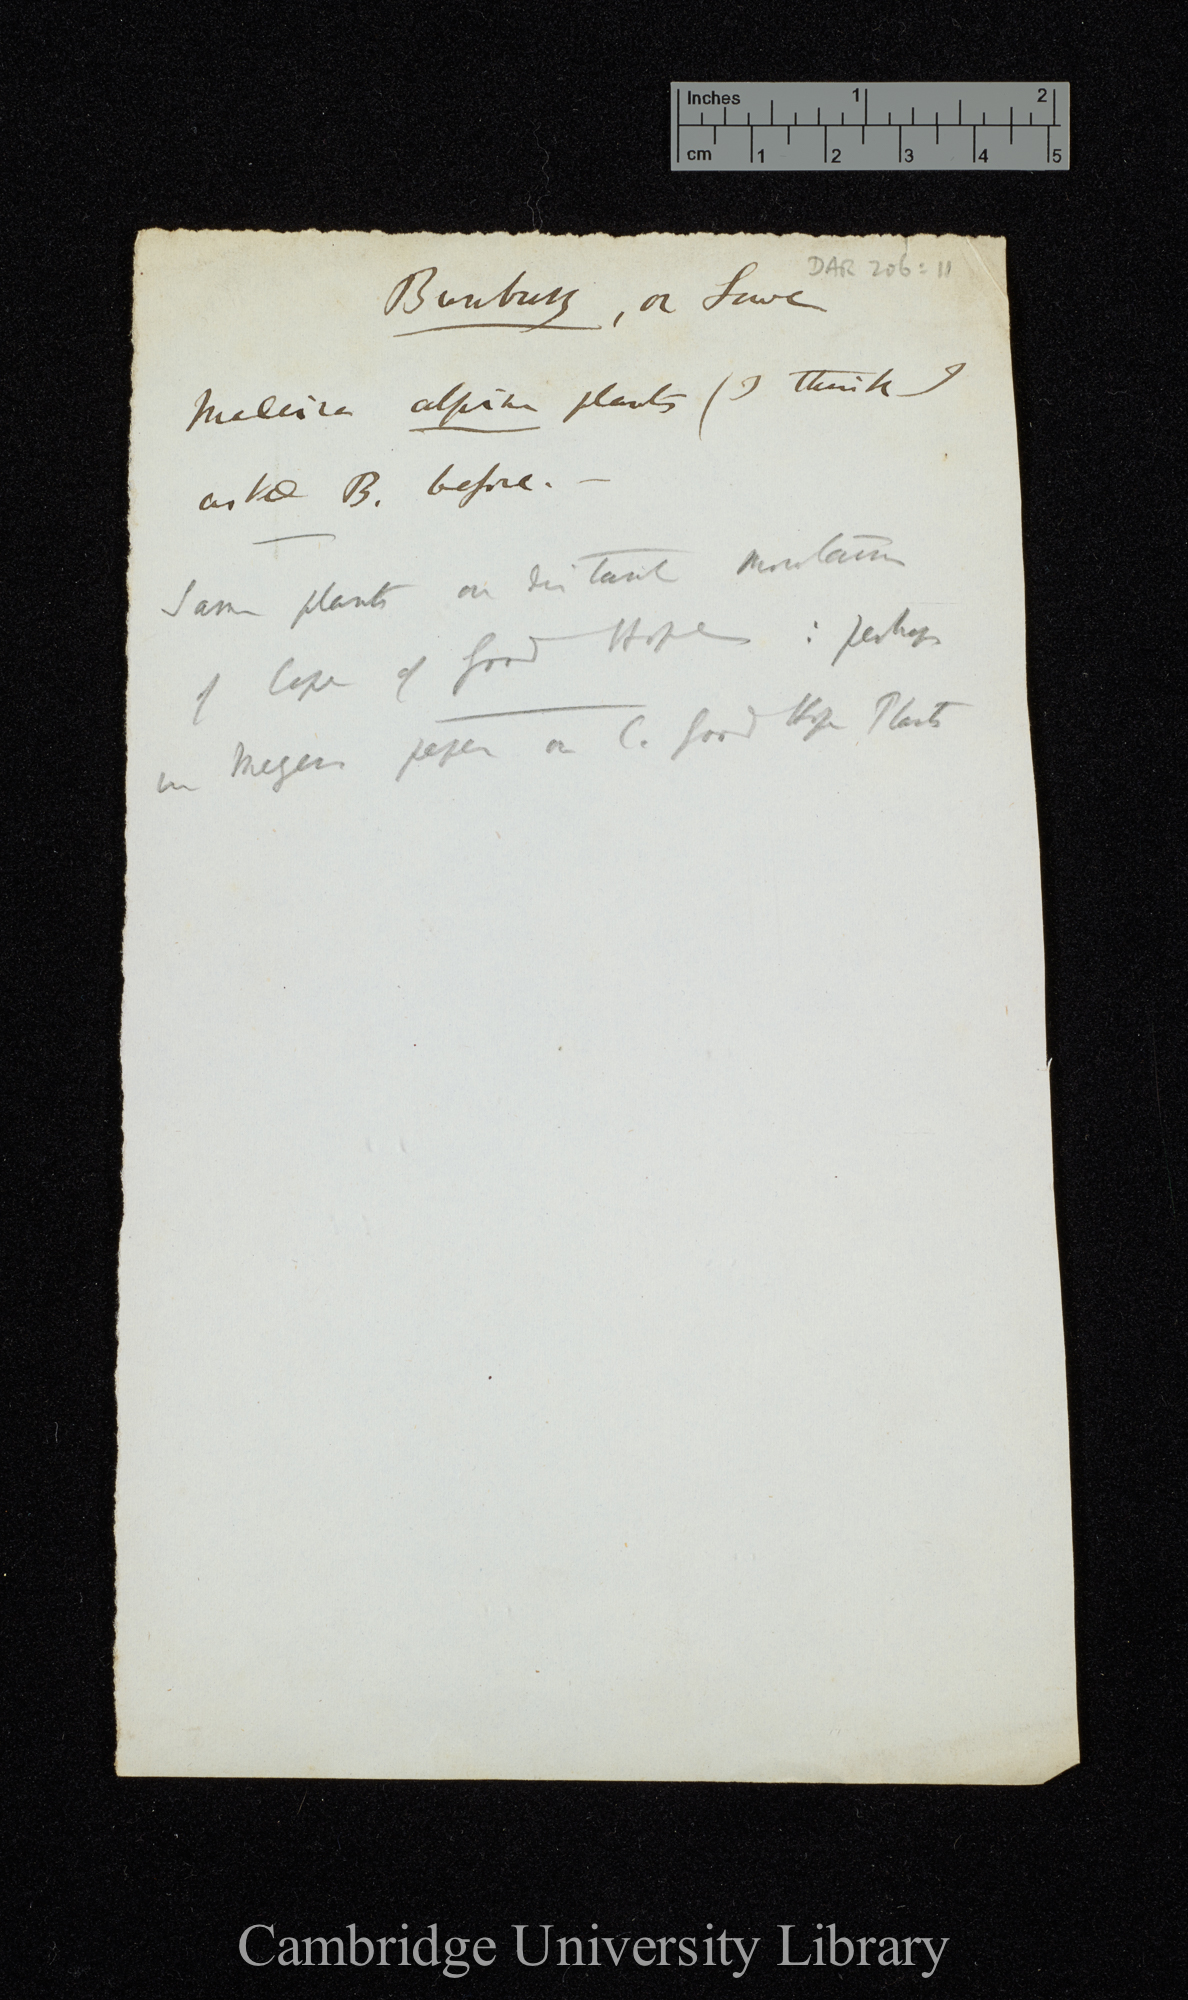 Inches 1 2
cm 1 2 3 4 5
DAR 206:11
Bunbury, or Lowe
Madeira alpine plants (I think I
asked B. before. —
Same plants on distant mountains
of Cape of Good Hope : perhaps
in Meyers paper on C. Good Hope Plants
Cambridge University Library